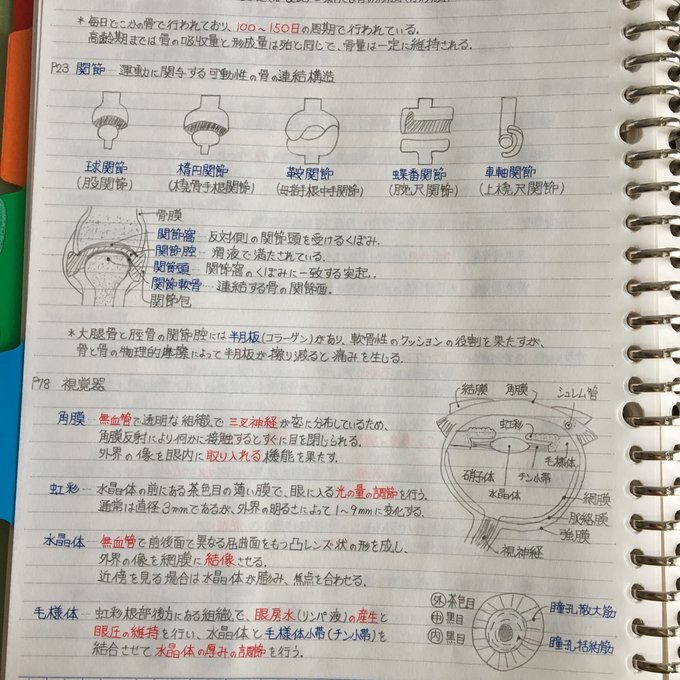 *毎日どこかの骨で行われており、100～150日の周期で行われている。
高齢期までは骨の吸収量と形成量は殆と同じで、骨量は一定に維持される。
P23 関節 … 運動に関与する可動性の骨の連結構造
球関節 楕円関節 鞍関節 蝶番関節 車軸関節
(股関節) (橈骨手根関節) (母指手根中手関節) (腕尺関節) (上橈尺関節)
骨膜
関節窩 … 反対側の関節頭を受けるくぼみ.
関節腔 … 滑液で満たされている.
関節頭 … 関節窩のくぼみに一致する突起.
関節軟骨 … 連結する骨の関節面.
関節包
*大腿骨と脛骨の関節腔には半月板(コラーゲン)があり、軟骨性のクッションの役割を果たすが、
骨と骨の物理的摩擦によって半月板が擦り減ると痛みを生じる.
P78 視覚器
角膜 … 無血管で透明な組織で三叉神経が密に分布しているため、
角膜反射により何かに接触するとすぐに目を閉じられる.
外界の像を眼内に取り入れる機能を果たす.
虹彩 … 水晶体の前にある茶色目の薄い膜で、眼に入る光の量の調節を行う.
通常は直径3mmであるが、外界の明るさによって1～9mmに変化する.
水晶体 … 無血管で前後面で異なる屈曲面をもつ凸レンズ状の形を成し、
外界の像を網膜に結像させる.
近傍を見る場合は水晶体が膨み、焦点を合わせる.
毛様体 … 虹彩根部後方にある組織で、眼房水(リンパ液)の産生と
眼圧の維持を行い、水晶体と毛様体小帯(チン小帯)を
結合させて水晶体の厚みの調節を行う.
結膜 角膜 シュレム管
虹彩
毛様体
硝子体 チン小帯
水晶体
網膜
脈絡膜
強膜
視神経
外 茶色目 瞳孔散大筋
中 黒目
内 黒目 瞳孔括約筋